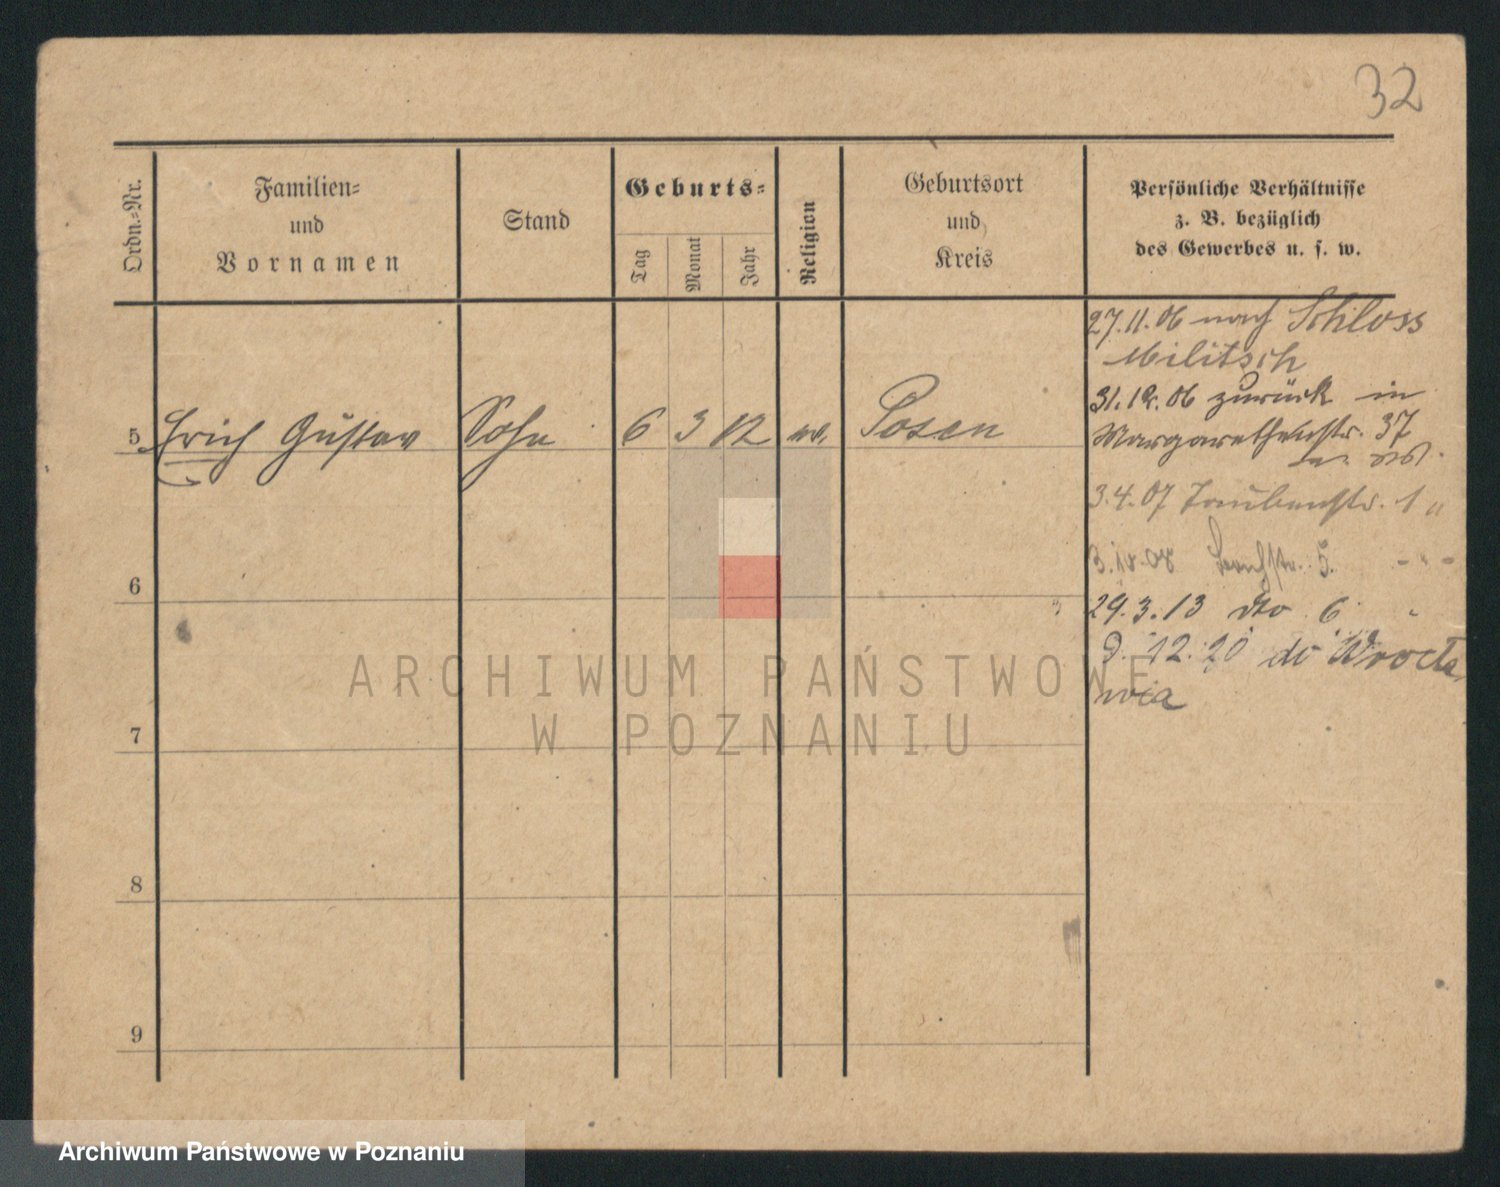 32
Ordn.-Nr.
Familien-
und
Vornamen
Stand
Geburts-
Tag
Monat
Jahr
Religion
Geburtsort
und
Kreis
Persönliche Verhältnisse
z. B. bezüglich
des Gewerbes u. s. w.
27.11.06 nach Schloss
Militsch
31.12.06 zurück in
Margarethenstr. 37
5 Erich Gustav Sohn 6 3 12 ev. Posen
3.4.07 Taubenstr. 1 "
3.10.08 5. - " -
6
29.3.13 dto 6 "
9.12.20 do Wrocła
wia
7
8
9
ARCHIWUM PAŃSTWOWE
W POZNANIU
Archiwum Państwowe w Poznaniu